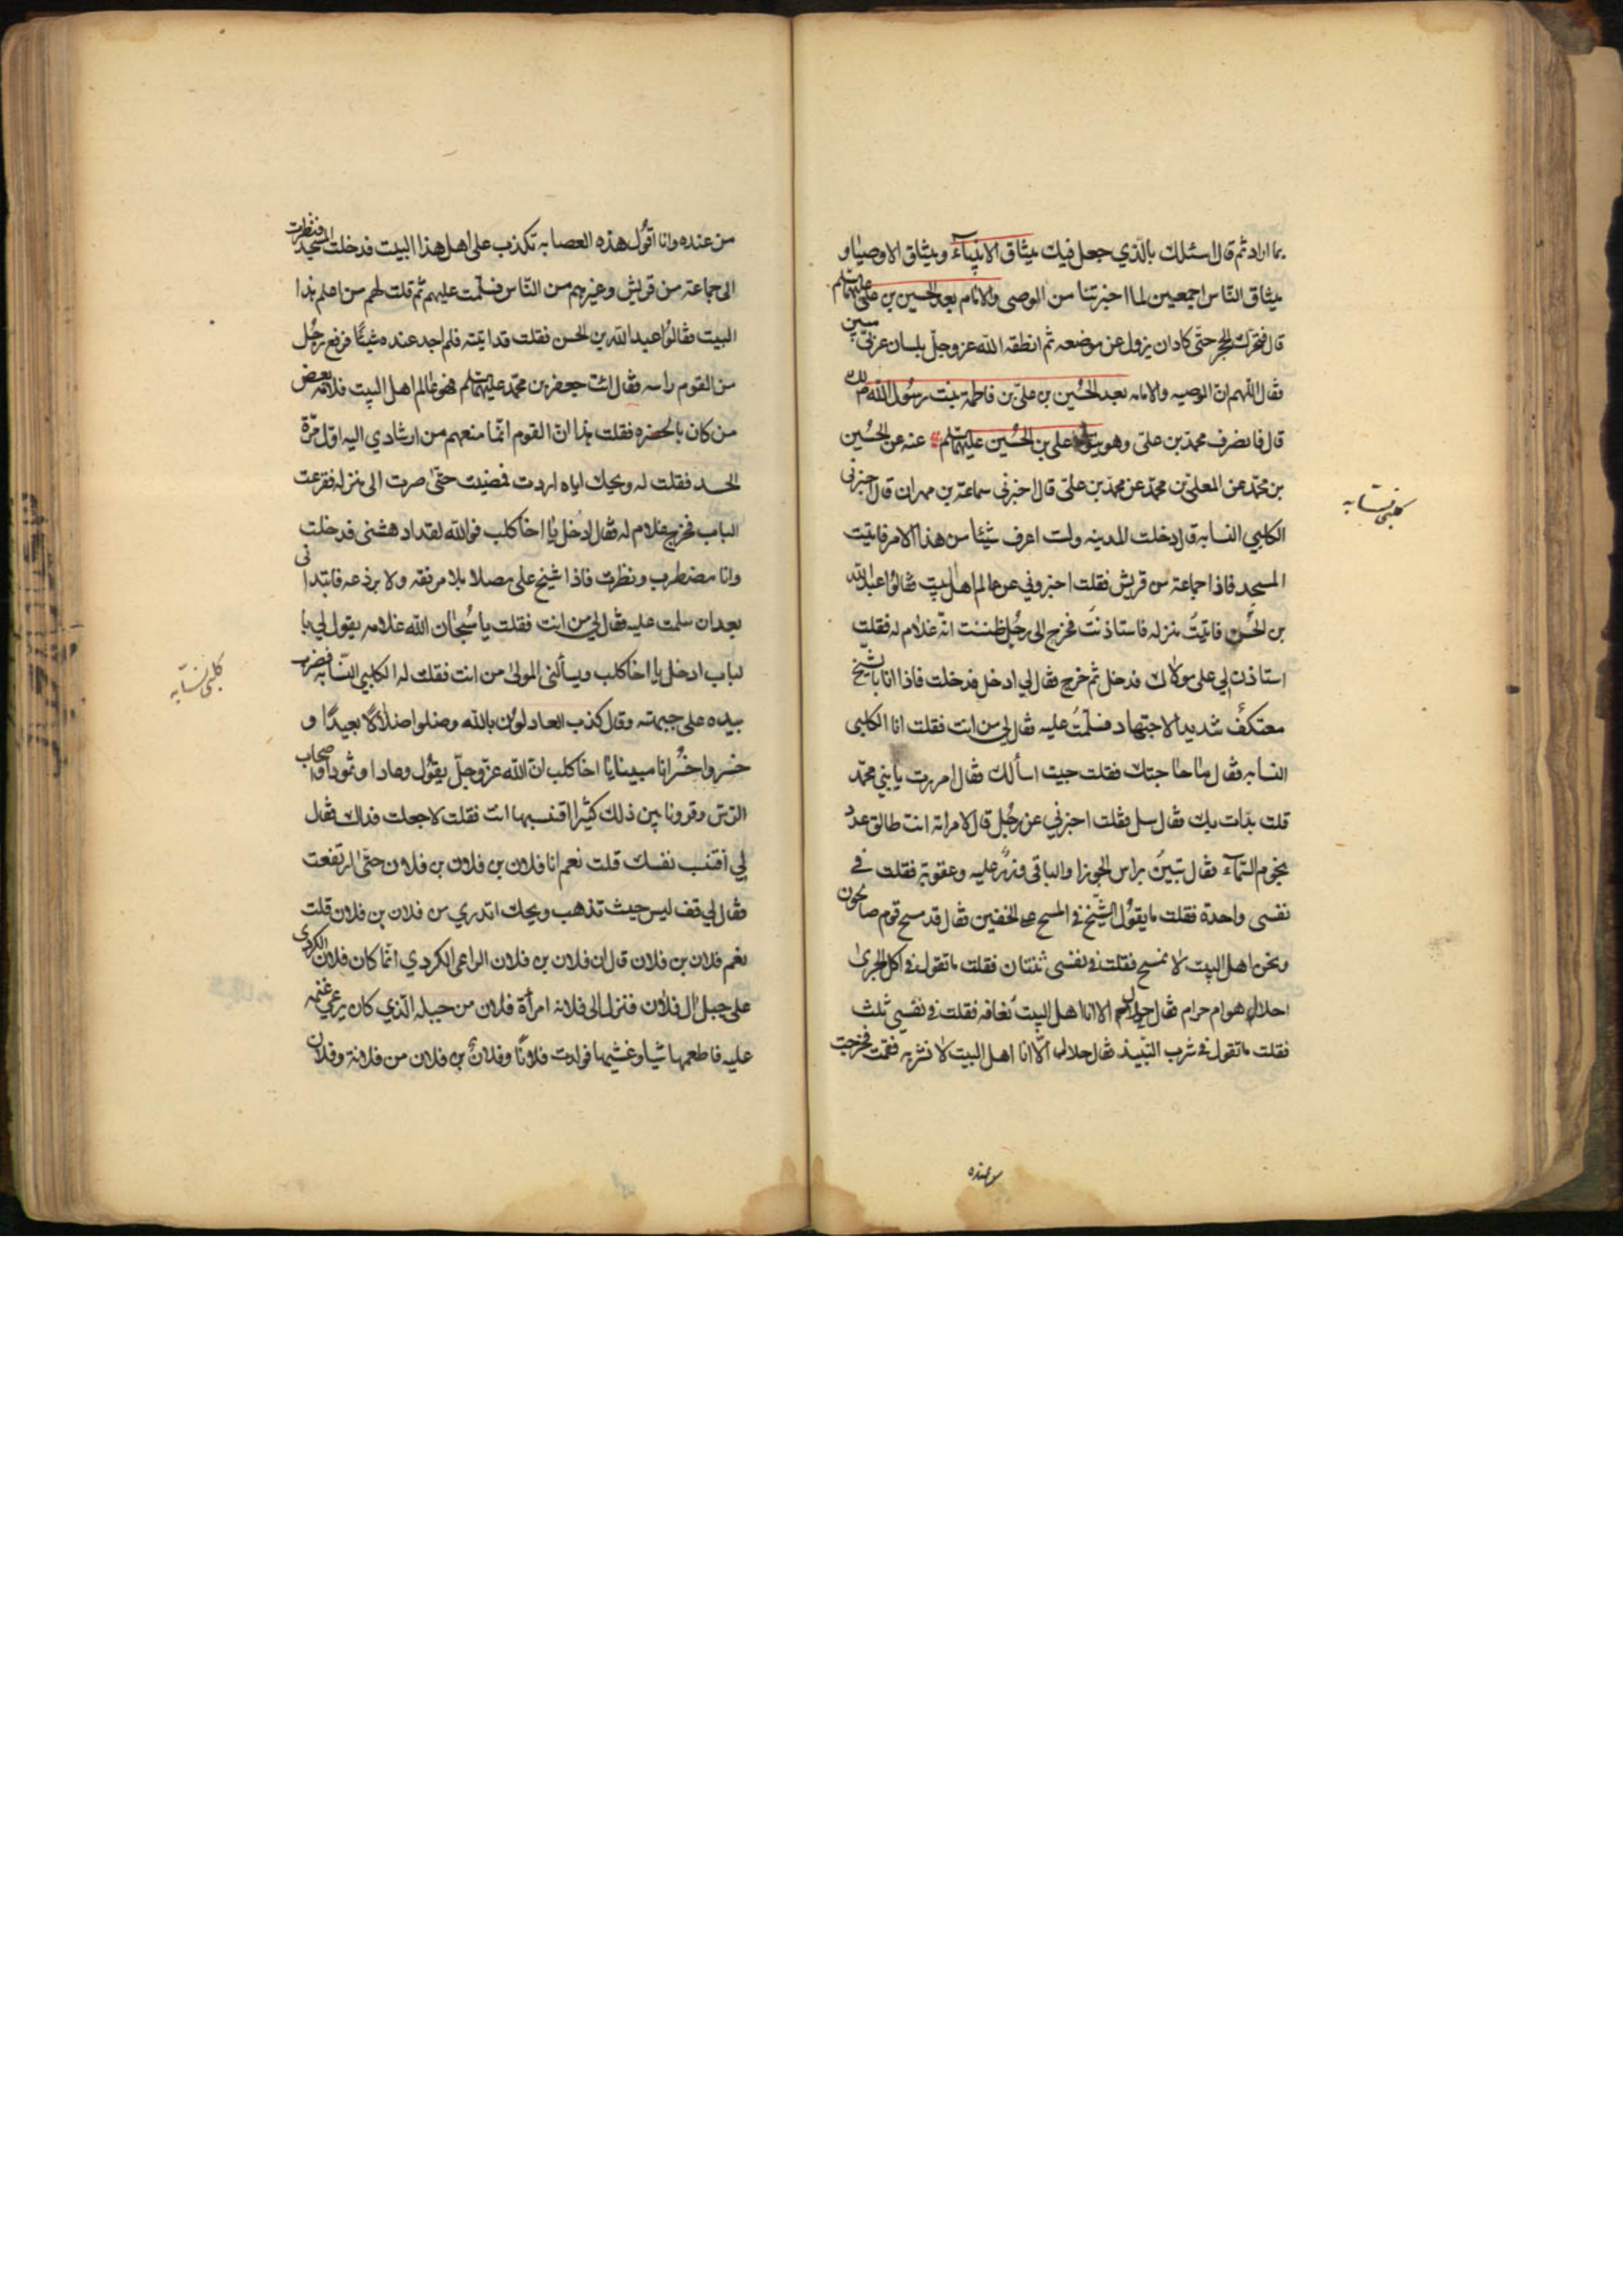 بما اراد ثم قال اسئلك بالذي جعل فيك ميثاق الانبياء وميثاق الاوصياء و
ميثاق الناس اجمعين لما اخبرتنا من الوصى والامام بعد الحسين بن على عليهما السلم
قال فتحرك الحجر حتى كادان يزول عن موضعه ثم انطقه الله عز وجل بلسان عربى مبين
فقال اللهم ان الوصيه والامامه بعد الحسين بن على بن فاطمة بنت رسول الله لك
قال فانصرف محمد بن على وهو يتولى على بن الحسين عليهما السلم عنه عن الحسين
بن محمد عن المعلى بن محمد عن محمد بن على قال اخبرني سماعة بن مهران قال اخبرنى
الكلبي النسابة قال دخلت المدينه ولست اعرف شيئا من هذا الامر فاتيت
المسجد فاذا جماعة من قريش فقلت اخبروني عن عالم اهل البيت فقالوا عبد الله
بن الحسن فاتيت منزله فاستاذنت فخرج الى رجل ظننت انه غلام له فقلت
استاذن لي على مولاك فدخل ثم خرج فقال لي ادخل فدخلت فاذا انا بالشيخ
معتكف شديد الاجتهاد فسلمت عليه فقال لي من انت فقلت انا الكلبى
النسابه فقال ما حاجتك فقلت جيت اسألك فقال امررت يا بني محمد
قلت بدات بك فقال سل فقلت اخبرني عن رجل قال لامراته انت طالق عدد
نجوم السماء فقال تبين براس الجوزا والباقى وزر عليه وعقوبة فقلت في
نفسى واحدة فقلت ما يقول الشيخ في المسح على الخفين فقال قد مسح قوم صالحون
ونحن اهل البيت لا نمسح فقلت في نفسى ثنتان فقلت ما تقول في اكل الجرى
احلال هو ام حرام فقال حلال الا انا اهل البيت نعافه فقلت في نفسى ثلث
فقلت ما تقول في شرب النبيذ فقال حلال الا انا اهل البيت لا نشربه فقمت فخرجت
من عنده
كلبى نسابه
من عنده وانا اقول هذه العصابه تكذب على اهل هذا البيت فدخلت المسجد فنظرت
الى جماعة من قريش وغيرهم من الناس فسلمت عليهم ثم قلت لهم من اعلم هذا
البيت فقالوا عبد الله بن الحسن فقلت قد اتيته فلم اجد عنده شيئا فرفع رجل
من القوم راسه فقال ائت جعفر بن محمد عليهما السلم فهو عالم اهل البيت فلامه بعض
من كان بالحضره فقلت ان القوم انما منعهم من ارشادي اليه اول مرة
الحسد فقلت له ويحك اياه اردت فمضيت حتى صرت الى منزله فقرعت
الباب فخرج غلام له فقال ادخل يا اخا كلب فوالله لقد ادهشنى فدخلت
وانا مضطرب ونظرت فاذا شيخ على مصلا بلا مرفقه ولا برذعه فابتدانى
بعد ان سلمت عليه فقال لي من انت فقلت يا سبحان الله غلامه يقول لي با
لباب ادخل يا اخا كلب ويسألنى المولى من انت فقلت له الكلبي النسابه فضرب
بيده على جبهته وقال كذب العادلون بالله وضلوا ضلالا بعيدا و
خسروا خسرانا مبينا يا اخا كلب ان الله عز وجل يقول وعادا وثمودا واصحاب
الرس وقرونا بين ذلك كثيرا افتنسبها انت فقلت لا جعلت فداك فقال
لي افتنسب نفسك قلت نعم انا فلان بن فلان بن فلان حتى ارتفعت
فقال لي قف ليس حيث تذهب ويحك اتدري من فلان بن فلان قلت
نعم فلان بن فلان قال ان فلان بن فلان الراعى الكردي انما كان فلان الكردى
على جبل ال فلان فنزل الى فلانة امرأة فلان من جبله الذي كان يرعى غنمه
عليه فاطعمها شيا وغشيها فولدت فلانا وفلان بن فلان من فلانة وفلان
كلبى نسابه